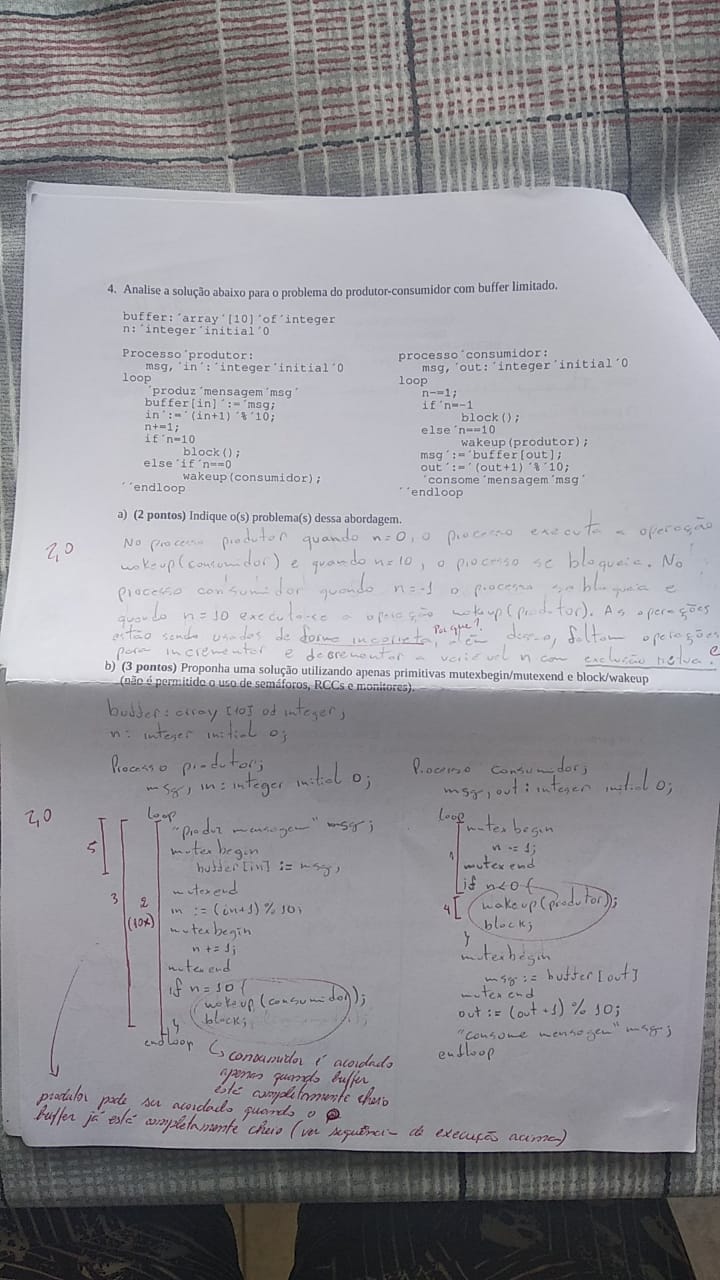 4. Analise a solução abaixo para o problema do produtor-consumidor com buffer limitado.
buffer:´array´[10]´of´integer
n:´integer´initial´0
Processo´produtor:
msg,´in´:´integer´initial´0
loop
´produz´mensagem´msg´
buffer[in]´:=´msg;
in´:=´(in+1)´%´10;
n+=1;
if´n=10
block();
else´if´n==0
wakeup(consumidor);
´´endloop
processo´consumidor:
msg,´out:´integer´initial´0
loop
n-=1;
if´n=-1
block();
else´n==10
wakeup(produtor);
msg´:=´buffer[out];
out´:=´(out+1)´%´10;
´consome´mensagem´msg´
´´endloop
a) (2 pontos) Indique o(s) problema(s) dessa abordagem.
2,0
No processo produtor quando n=0, o processo executa a operação
wakeup(consumidor) e quando n=10, o processo se bloqueia. No
processo consumidor quando n=-1 o processo se bloqueia e
quando n=10 executa-se a operação wakeup(produtor). As operações
estão sendo usadas de forma incorreta, além disso, faltam operações
Por que?
para incrementar e decrementar a variável n com exclusão mútua.
b) (3 pontos) Proponha uma solução utilizando apenas primitivas mutexbegin/mutexend e block/wakeup
(não é permitido o uso de semáforos, RCCs e monitores).
buffer: array [10] of integer;
n: integer initial 0;
Processo produtor;
msg, in: integer initial 0;
2,0
loop
"produz mensagem" msg;
mutexbegin
buffer[in] := msg;
mutexend
in := (in+1) % 10;
mutexbegin
n += 1;
mutexend
if n = 10 {
wakeup (consumidor);
block;
}
endloop
5
3
2
(10x)
Processo consumidor;
msg, out: integer initial 0;
loop
mutexbegin
n -= 1;
mutexend
if n<0 {
wakeup(produtor);
block;
}
mutexbegin
msg := buffer[out]
mutexend
out := (out+1) % 10;
"consome mensagem" msg;
endloop
1
4
consumidor é acordado
apenas quando buffer
está completamente cheio
produtor pode ser acordado quando o
buffer já está completamente cheio (ver sequência de execução acima)